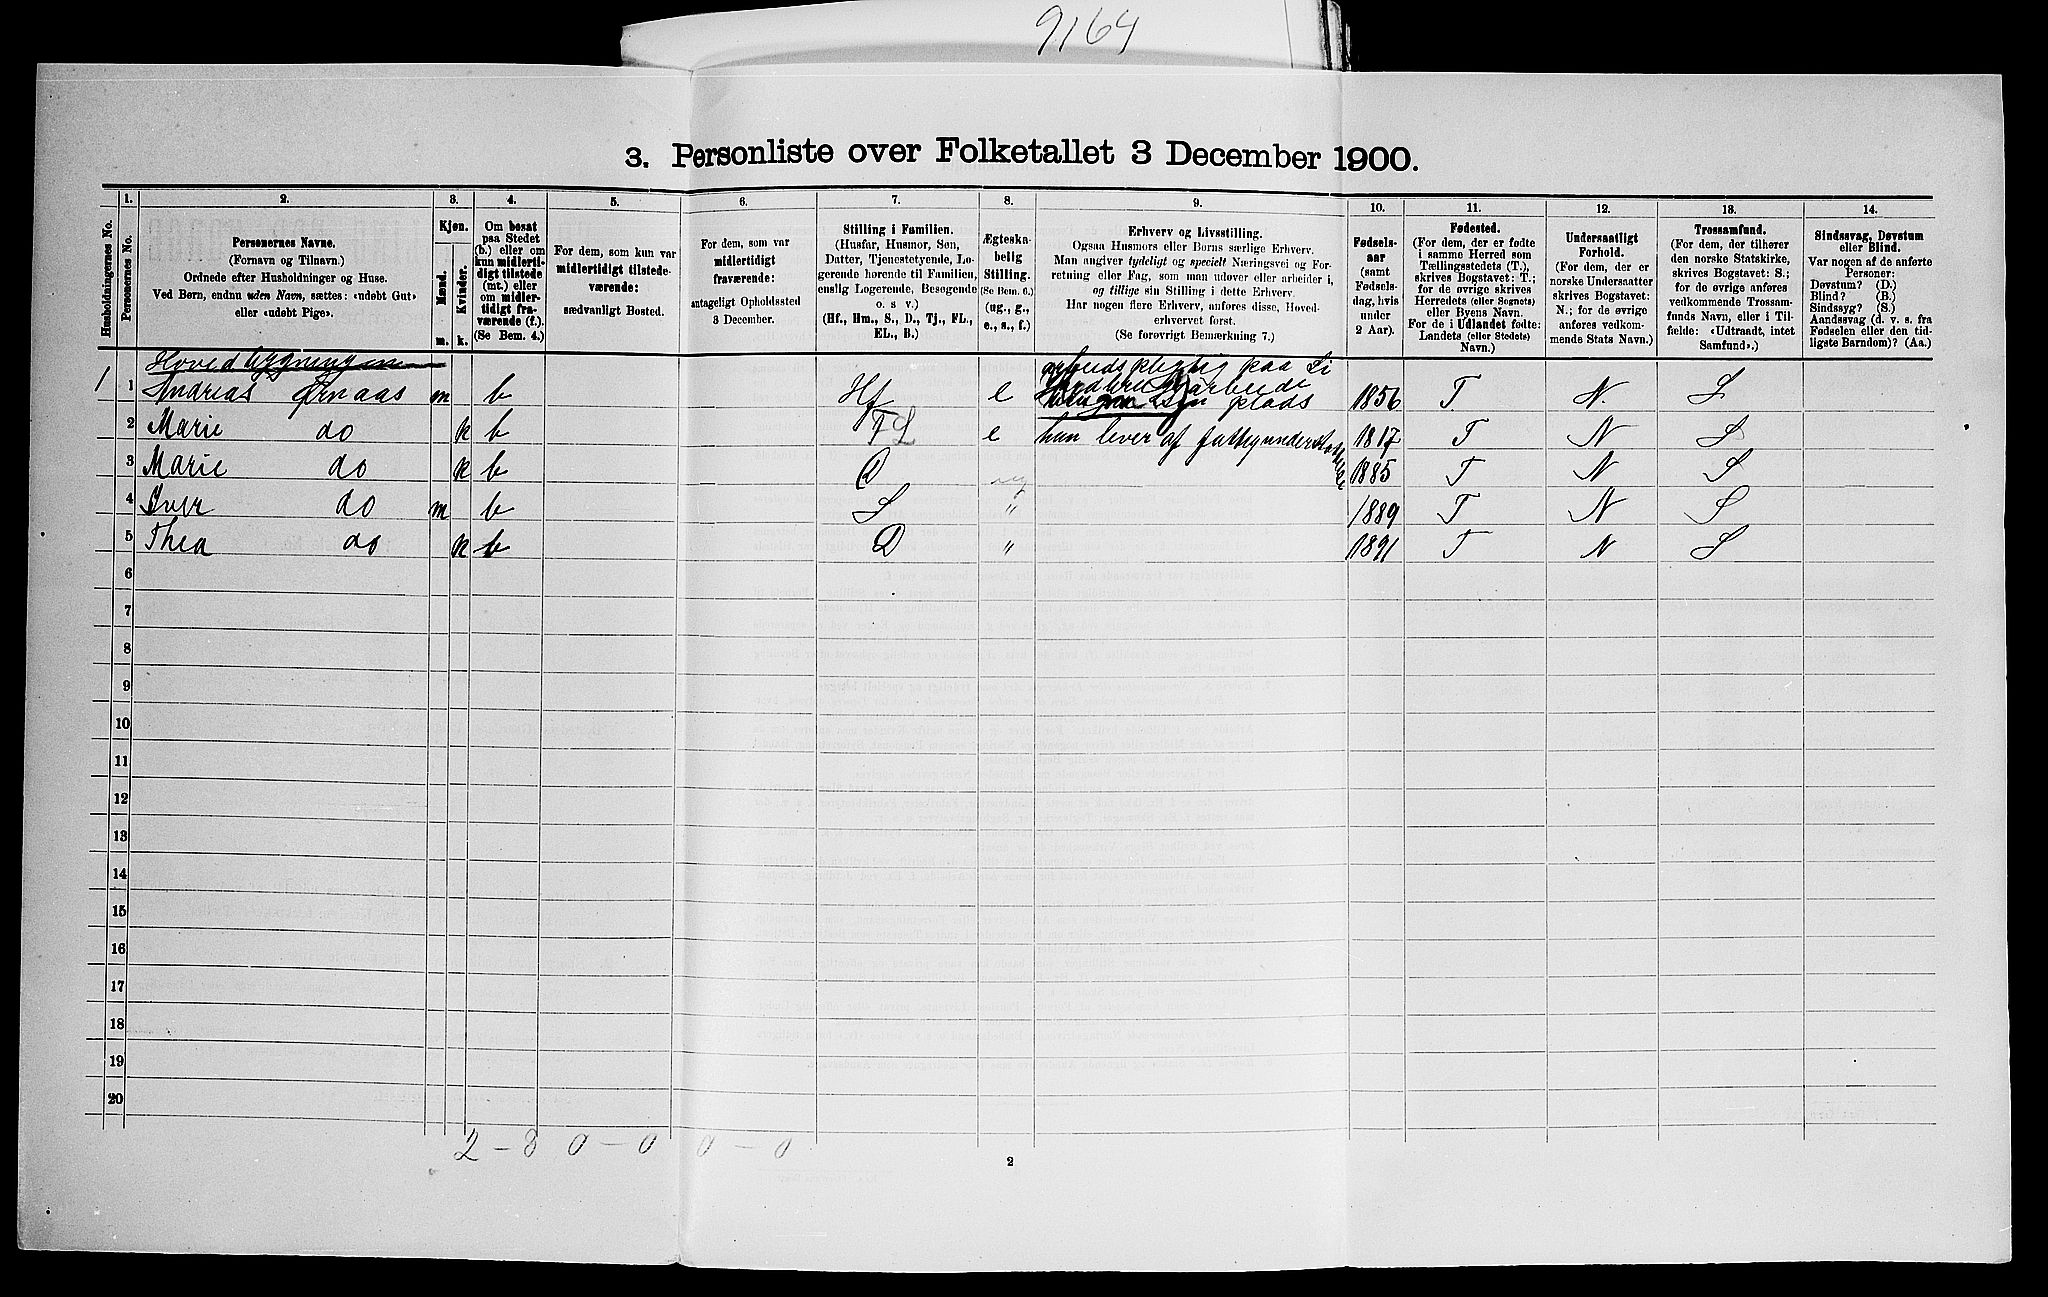 9164
3. Personliste over Folketallet 3 December 1900.
Husholdningernes No.
1.
Personernes No.
2.
Personernes Navne.
(Fornavn og Tilnavn.)
Ordnede efter Husholdninger og Huse.
Ved Børn, endnu uden Navn, sættes: «udøbt Gut»
eller «udøbt Pige».
3.
Kjøn.
Mænd.
Kvinder.
m. k.
4.
Om bosat
paa Stedet
(b.) eller om
kun midlerti-
digt tilstede
(mt.) eller
om midler-
tidigt fra-
værende (f.)
(Se Bem. 4.)
5.
For dem, som kun var
midlertidigt tilstede-
værende:
sædvanligt Bosted.
6.
For dem, som var
midlertidigt
fraværende:
antageligt Opholdssted
3 December.
7.
Stilling i Familien.
(Husfar, Husmor, Søn,
Datter, Tjenestetyende, Lo-
gerende hørende til Familien,
enslig Logerende, Besøgende
o. s v.)
(Hf., Hm., S., D., Tj., FL.,
EL., B.)
8.
Ægteska-
belig
Stilling.
(Se Bem. 6.)
(ug., g.,
e., s., f.)
9.
Erhverv og Livsstilling.
Ogsaa Husmors eller Børns særlige Erhverv.
Man angiver tydeligt og specielt Næringsvei og For-
retning eller Fag, som man udøver eller arbeider i,
og tillige sin Stilling i dette Erhverv.
Har nogen flere Erhverv, anføres disse, Hoved-
erhvervet først.
(Se forøvrigt Bemærkning 7.)
10.
Fødsels-
aar
(samt
Fødsels-
dag, hvis
under
2 Aar).
11.
Fødested.
(For dem, der er fødte
i samme Herred som
Tællingsstedets (T.),
skrives Bogstavet: T.;
for de øvrige skrives
Herredets (eller Sognets)
eller Byens Navn.
For de i Udlandet fødte:
Landets (eller Stedets)
Navn.)
12.
Undersaatligt
Forhold.
(For dem, der er
norske Undersaatter
skrives Bogstavet:
N.; for de øvrige
anføres vedkom-
mende Stats Navn.)
13.
Trossamfund.
(For dem, der tilhører
den norske Statskirke,
skrives Bogstavet: S.;
for de øvrige anføres
vedkommende Trossam-
funds Navn, eller i Til-
fælde: «Udtraadt, intet
Samfund».)
14.
Sindssvag, Døvstum
eller Blind.
Var nogen af de anførte
Personer:
Døvstum? (D.)
Blind? (B.)
Sindssyg? (S.)
Aandssvag (d. v. s. fra
Fødselen eller den tid-
ligste Barndom)? (Aa.)
Hovedbygningen
arbeidspligtig paa Li
1 1 Andreas Ørnaas m b Hf e plads 1856 T. N. S
2 Marie do k b FL e hun lever af fattigunderstøttelse 1817 T N S
3 Marie do k b D ug 1885 T N S
4 Iver do m b S " 1889 T N S
5 Thea do k b D " 1891 T N S
6
7
8
9
10
11
12
13
14
15
16
17
18
19
20
2 - 3 0 - 0 0 - 0
2